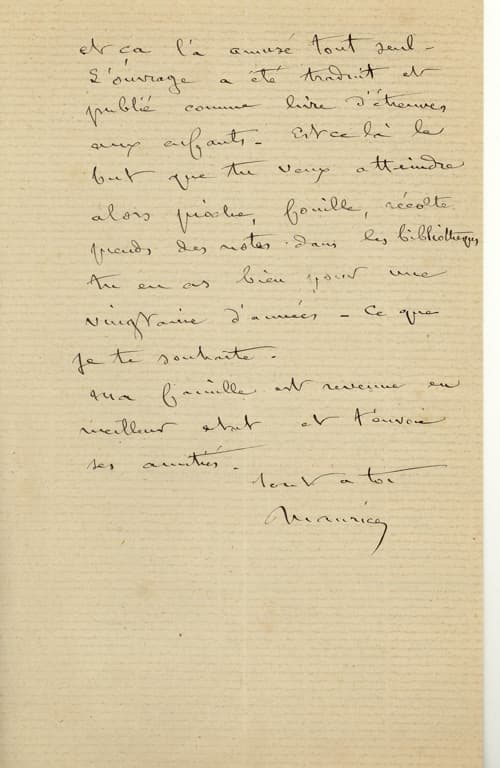 et ca l'a amusé tout seul -
L'ouvrage a été traduit et
publié comme livre d'étrennes
aux enfants - Est ce là le
but que tu veux atteindre
alors pioche, fouille, récolte
prends des notes dans les bibliothèques
tu en as bien pour une
vingtaine d'années - Ce que
je te souhaite.
Ma famille est revenue en
meilleur état et t'envoie
ses amitiés.
Tout a toi
Maurice